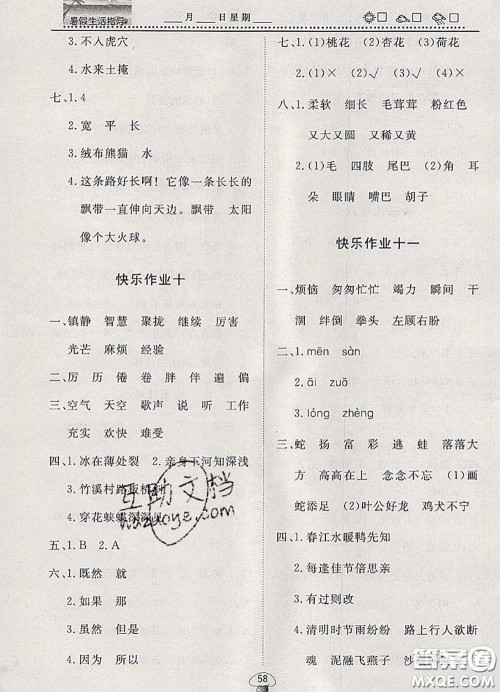 暑假生活指导
____月____日星期____
3.不入虎穴
4.水来土掩
七、1.4
2.宽 平 长
3.绒布熊猫 水
4.这条路好长啊！它像一条长长的
飘带一直伸向天边。飘带 太阳
像个大火球。
快乐作业十
一、镇静 智慧 聚拢 继续 厉害
光芒 麻烦 经验
二、厉 历 倦 卷 胖 伴 遍 偏
三、空气 天空 歌声 说 听 工作
充实 欢快 难受
四、1.冰在薄处裂 2.亲身下河知深浅
3.竹溪村路
4.穿花蛱蝶深深见
五、1.B 2.A
六、1.既然 就
2.如果 那
3.虽然 但是
4.因为 所以
七、1.(1)桃花 (2)杏花 (3)荷花
(1)× (2)√ (3)√ (4)×
八、1.柔软 细长 毛茸茸 粉红色
又大又圆 又柔又黄
2.(1)毛 四肢 尾巴 (2)角 耳
朵 眼睛 嘴巴 胡子
快乐作业十一
一、烦恼 匆匆忙忙 竭力 瞬间 干
涸 绊倒 拳头 左顾右盼
二、1.mēn sàn
2.āi zuō
3.lóng zhèng
三、蛇 扬 富 彩 逃 蛙 落落大
方 高高在上 念念不忘 (1)画
蛇添足 (2)叶公好龙 鸡犬不宁
四、1.春江水暖鸭先知
2.每逢佳节倍思亲
3.有过则改
4.清明时节雨纷纷 路上行人欲断
魂 泥融飞燕子 沙
58
互助文档
huzuoye.com
答案圈
MXQE.COM